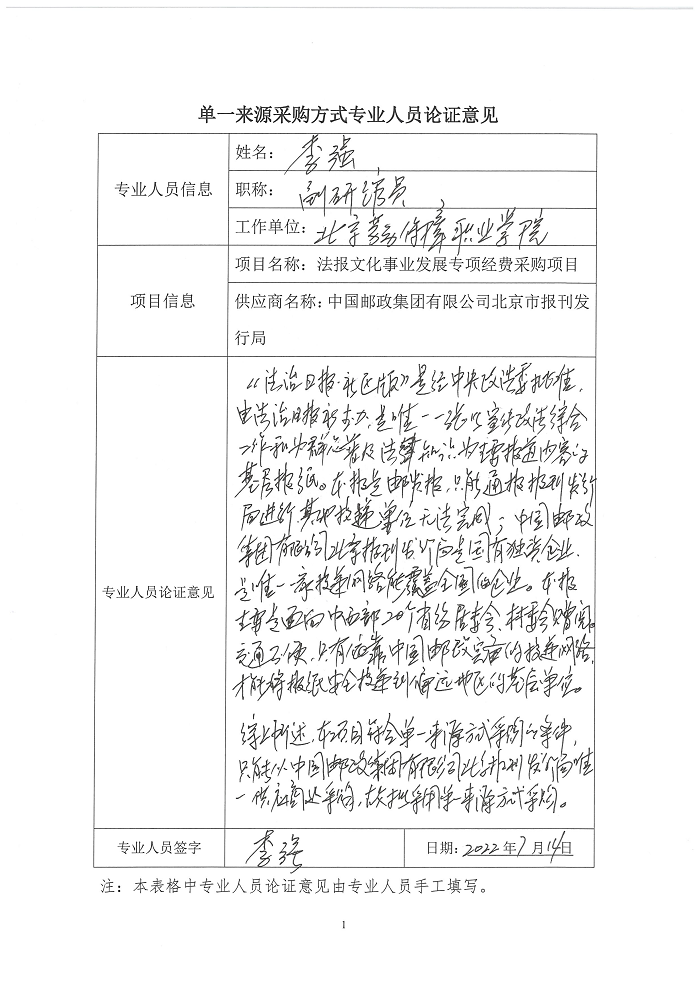 单一来源采购方式专业人员论证意见
专业人员信息
姓名：李强
职称：副研究员
工作单位：北京劳动保障职业学院
项目信息
项目名称：法报文化事业发展专项经费采购项目
供应商名称：中国邮政集团有限公司北京市报刊发
行局
专业人员论证意见
《法治日报·社区版》是经中央政法委批准，
由法治日报社主办，是唯一一张以宣传政法综合
工作和为群众普及法律知识为主要报道内容的
基层报纸。本报是邮发报，只能通报报刊发行
局进行，其他投递单位无法完成；中国邮政
集团有限公司北京报刊发行局是国有独资企业，
是唯一一家投递网络能覆盖全国的企业。本报
主要是面向中西部20个省份居委会、村委会赠阅。
交通不便，只有依靠中国邮政完备的投递网络，
才能将报纸安全投递到偏远地区的基层单位。
综上所述，本项目符合单一来源方式采购的条件，
只能从中国邮政集团有限公司北京报刊发行局唯
一供应商处采购，故拟采用单一来源方式采购。
专业人员签字
李强
日期：2022年7月14日
注：本表格中专业人员论证意见由专业人员手工填写。
1